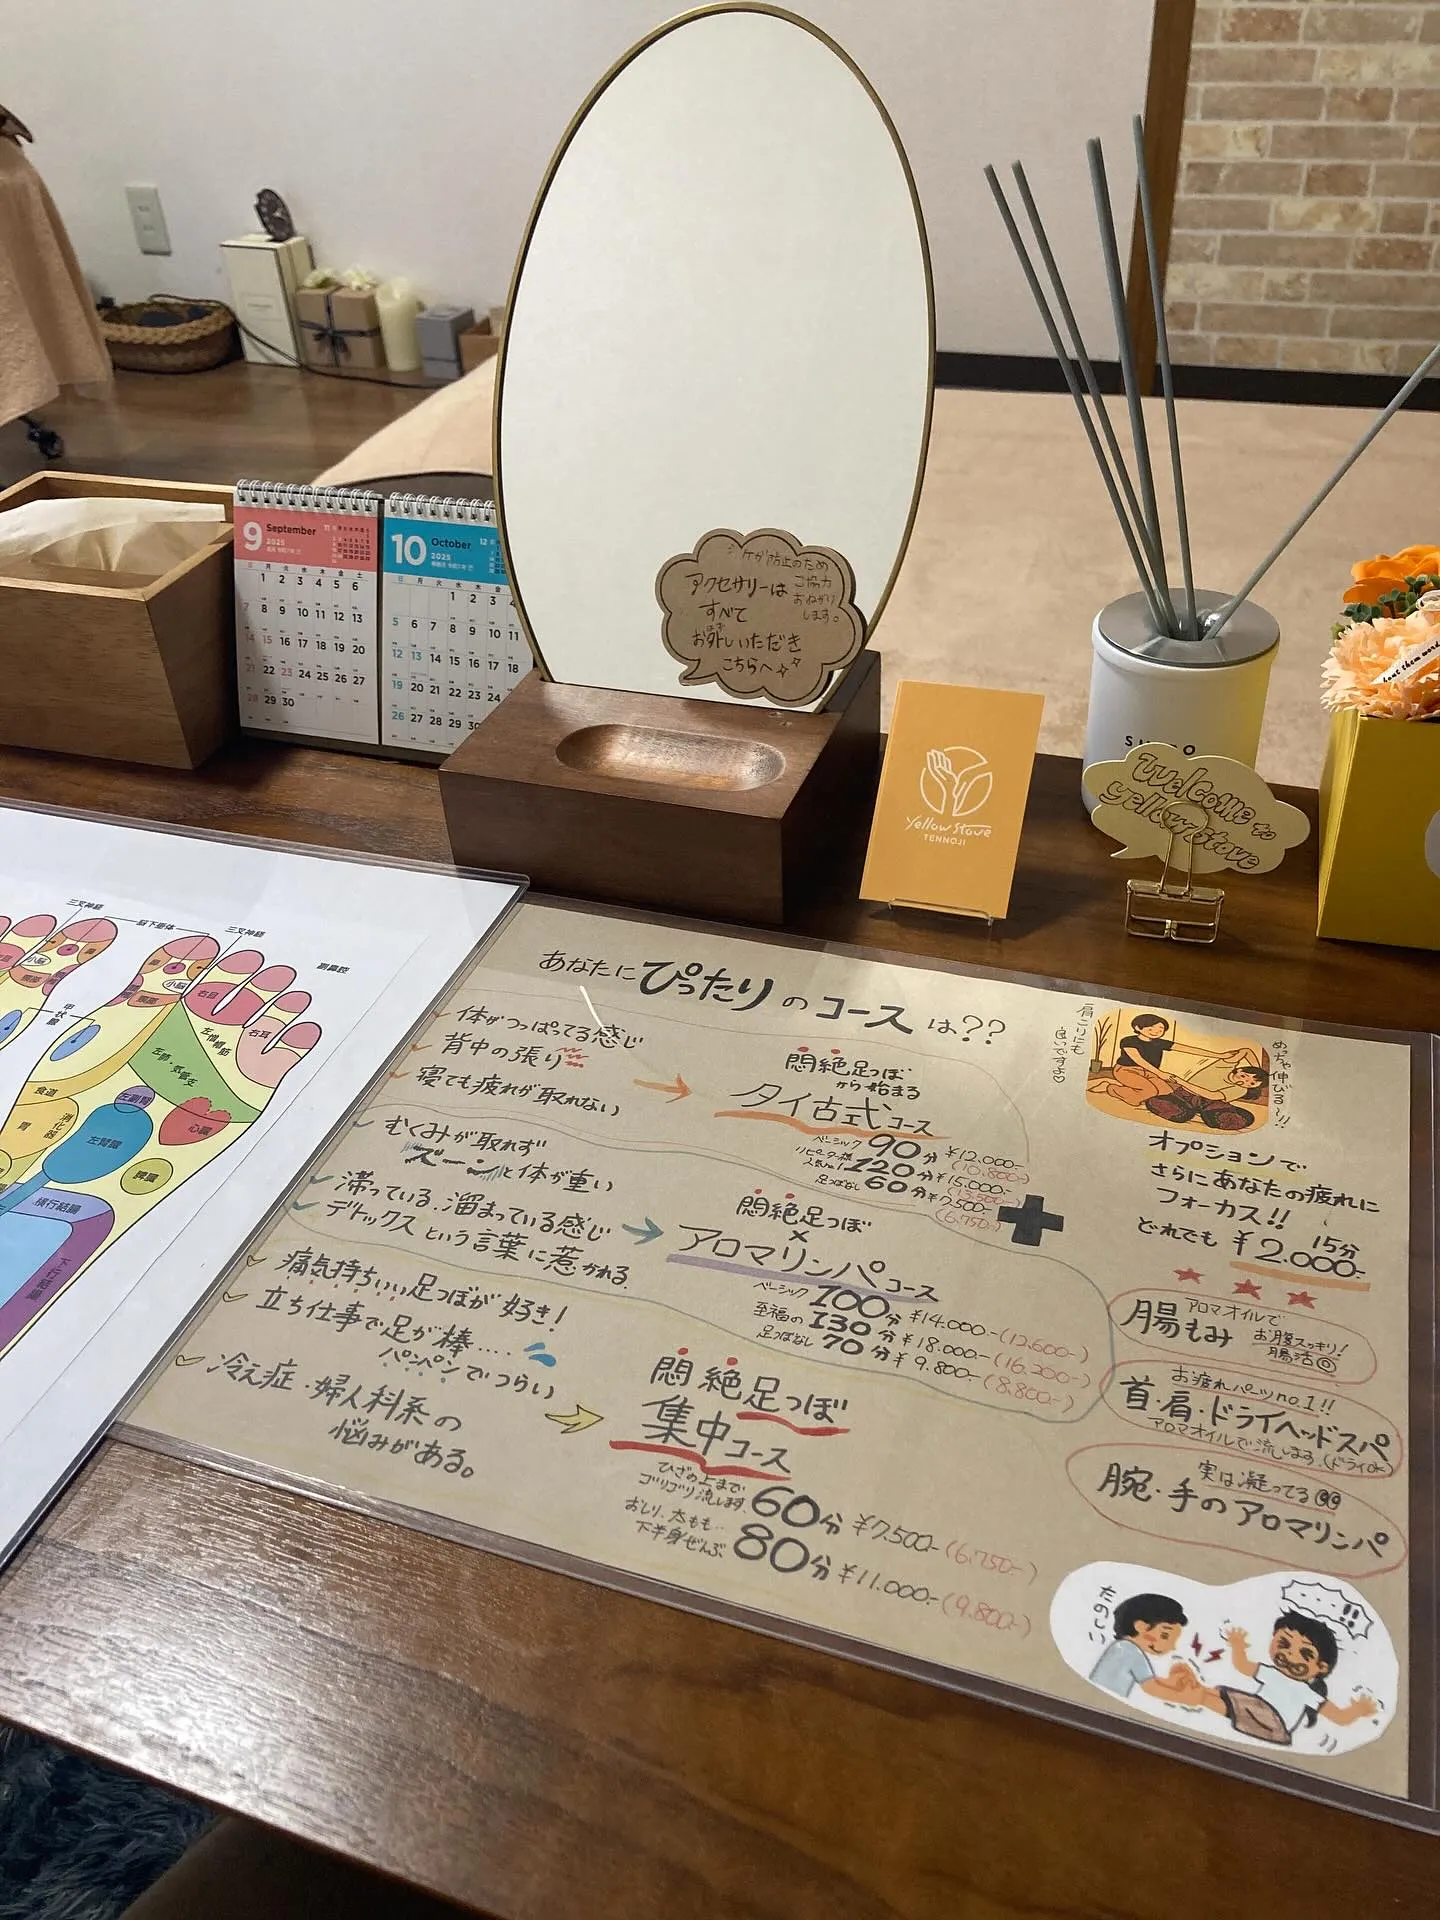 9 September
2025
日 月 火 水 木 金 土
1 2 3 4 5 6
7 8 9 10 11 12 13
14 15 16 17 18 19 20
21 22 23 24 25 26 27
28 29 30
10 October
2025
1 2 3 4
5 6 7 8 9 10 11
12 13 14 15 16 17 18
19 20 21 22 23 24
26 27 28 29 30
ケガ防止のため
ご協力
おねがい
します。
アクセサリーは
すべて
お外しいただき
こちらへ
yellow stove
TENNOJI
Welcome to
yellow stove
三叉神経
脳下垂体
三叉神経
副鼻腔
鼻
小脳
小脳
甲状腺
右目
右耳
左僧帽筋
左肺・気管支
食道
胃
消化器
左副腎
左腎臓
心臓
脾臓
横行結腸
下行結腸
あなたにぴったりのコースは??
体がつっぱってる感じ
背中の張り
寝ても疲れが取れない
悶絶足つぼ
から始まる
タイ古式コース
ベーシック 90分 ¥12.000- (10.800-)
リピーター様
人気no.1 120分 ¥15.000- (13.500-)
足つぼなし 60分 ¥7.500- (6.750-)
むくみが取れず
ズーンと体が重い
滞っている、溜まっている感じ
デトックスという言葉に惹かれる
悶絶足つぼ
×
アロマリンパコース
ベーシック 100分 ¥14.000- (12.600-)
至福の 130分 ¥18.000- (16.200-)
足つぼなし 70分 ¥9.800- (8.800-)
痛気持ちいい足つぼが好き!
立ち仕事で足が棒....
パンパンでつらい
冷え症・婦人科系の
悩みがある。
悶絶足つぼ
集中コース
ひざの上まで
ゴリゴリ流します 60分 ¥7.500- (6.750-)
おしり、太もも..
下半身ぜんぶ 80分 ¥11.000- (9.800-)
肩こりにも
良いですよ♡
めちゃ伸びる〜!!
オプションで
さらにあなたの疲れに
フォーカス!!
どれでも 15分 ¥2.000-
アロマオイルで
腸もみ
お腹スッキリ!
腸活◎
お疲れパーツno.1!!
首・肩・ドライヘッドスパ
アロマオイルで流します(ドライOK)
実は凝ってる
腕・手のアロマリンパ
たのしい